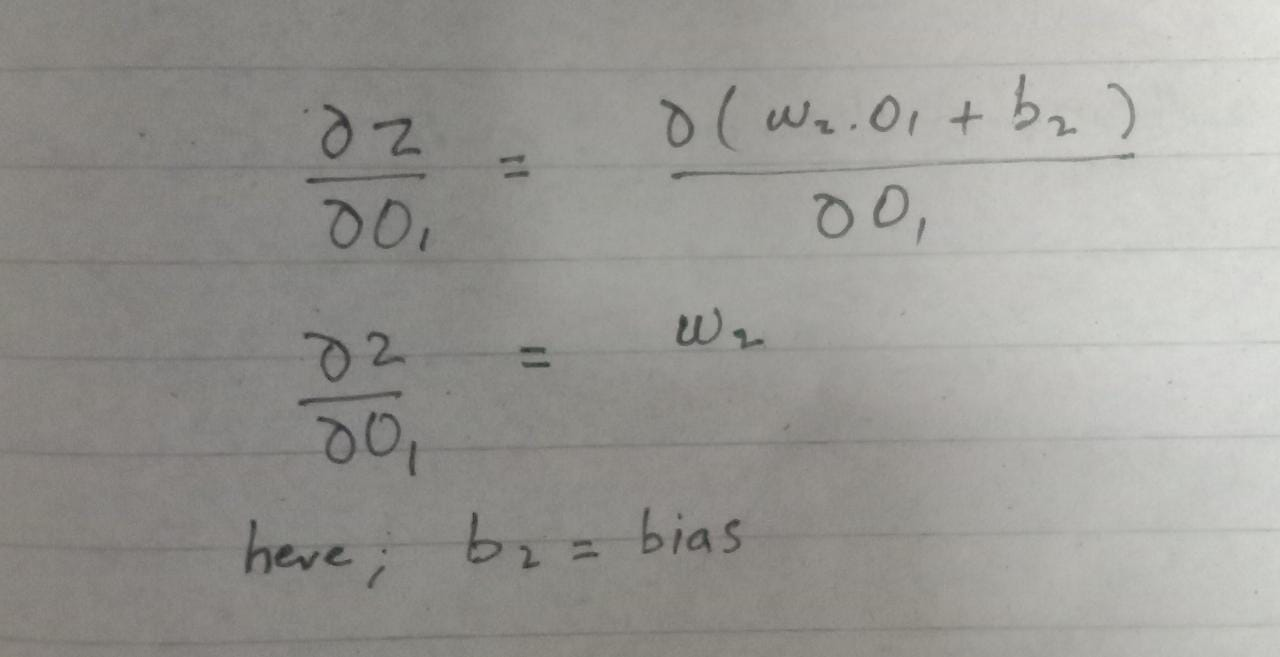 ∂z/∂O₁ = ∂(w₂.O₁ + b₂)/∂O₁
∂z/∂O₁ = w₂
here; b₂ = bias